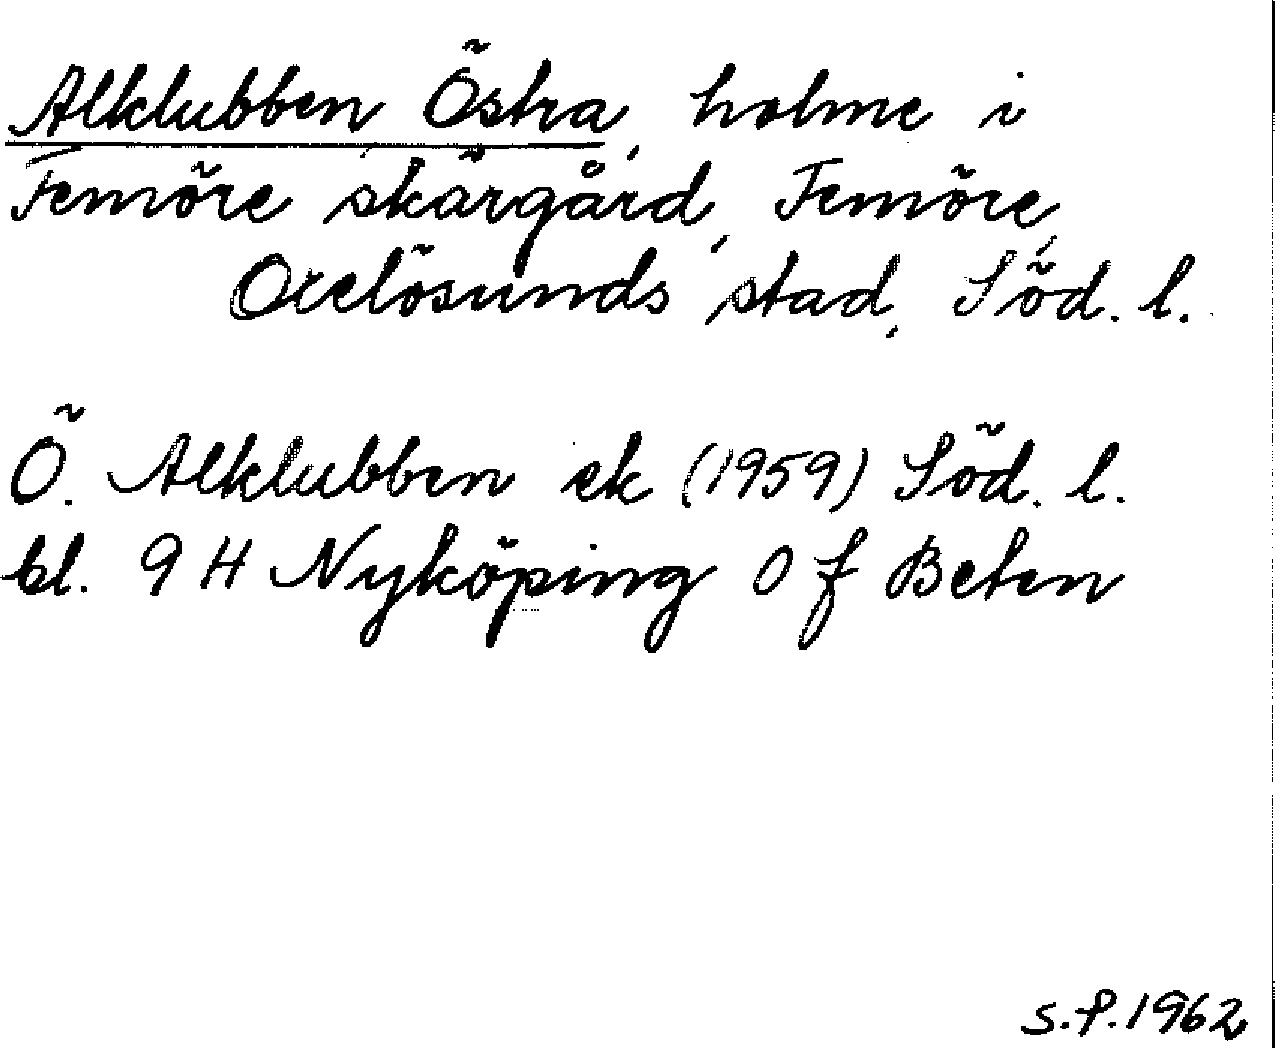 Alklubben Östra, holme i
Femöre skärgård, Femöre,
Oxelösunds stad, Söd. l.
Ö. Alklubben ek (1959) Söd. l.
bl. 9 H Nyköping 0 f Beten
S.P. 1962